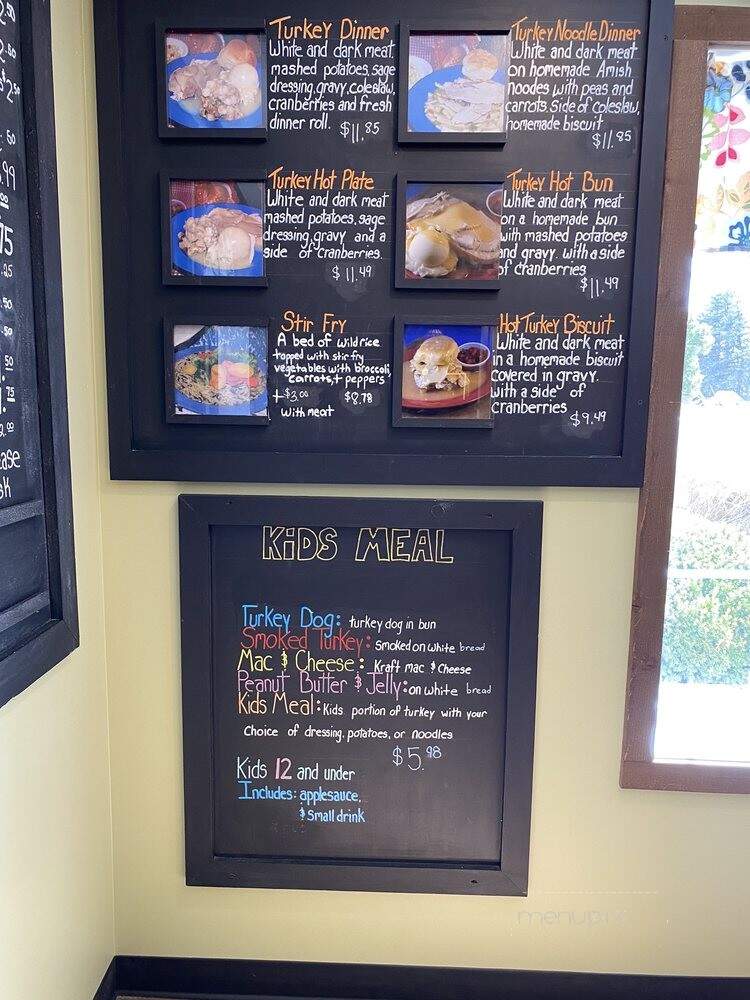 Turkey Dinner
White and dark meat
mashed potatoes, sage
dressing, gravy, coleslaw,
cranberries and fresh
dinner roll. $11.85
Turkey Noodle Dinner
White and dark meat
on homemade Amish
noodes with peas and
carrots. Side of coleslaw,
homemade biscuit
$11.85
Turkey Hot Plate
White and dark meat
mashed potatoes, sage
dressing, gravy and a
side of cranberries.
$11.49
Turkey Hot Bun
White and dark meat
on a homemade bun
with mashed potatoes
and gravy. with a side
of cranberries
$11.49
Stir Fry
A bed of wild rice
topped with stir fry
vegetables with broccoli,
carrots, + peppers
+$3.00 $8.78
with meat
Hot Turkey Biscuit
White and dark meat
in a homemade biscuit
covered in gravy.
with a side of
cranberries
$9.49
KiDS MEAL
Turkey Dog: turkey dog in bun
Smoked Turkey: Smoked on white bread
Mac $ Cheese: Kraft mac $ cheese
Peanut Butter $ Jelly: on white bread
Kids Meal: Kids portion of turkey with your
choice of dressing, potatoes, or noodles
$5.98
Kids 12 and under
Includes: applesauce,
$ Small drink
menupix